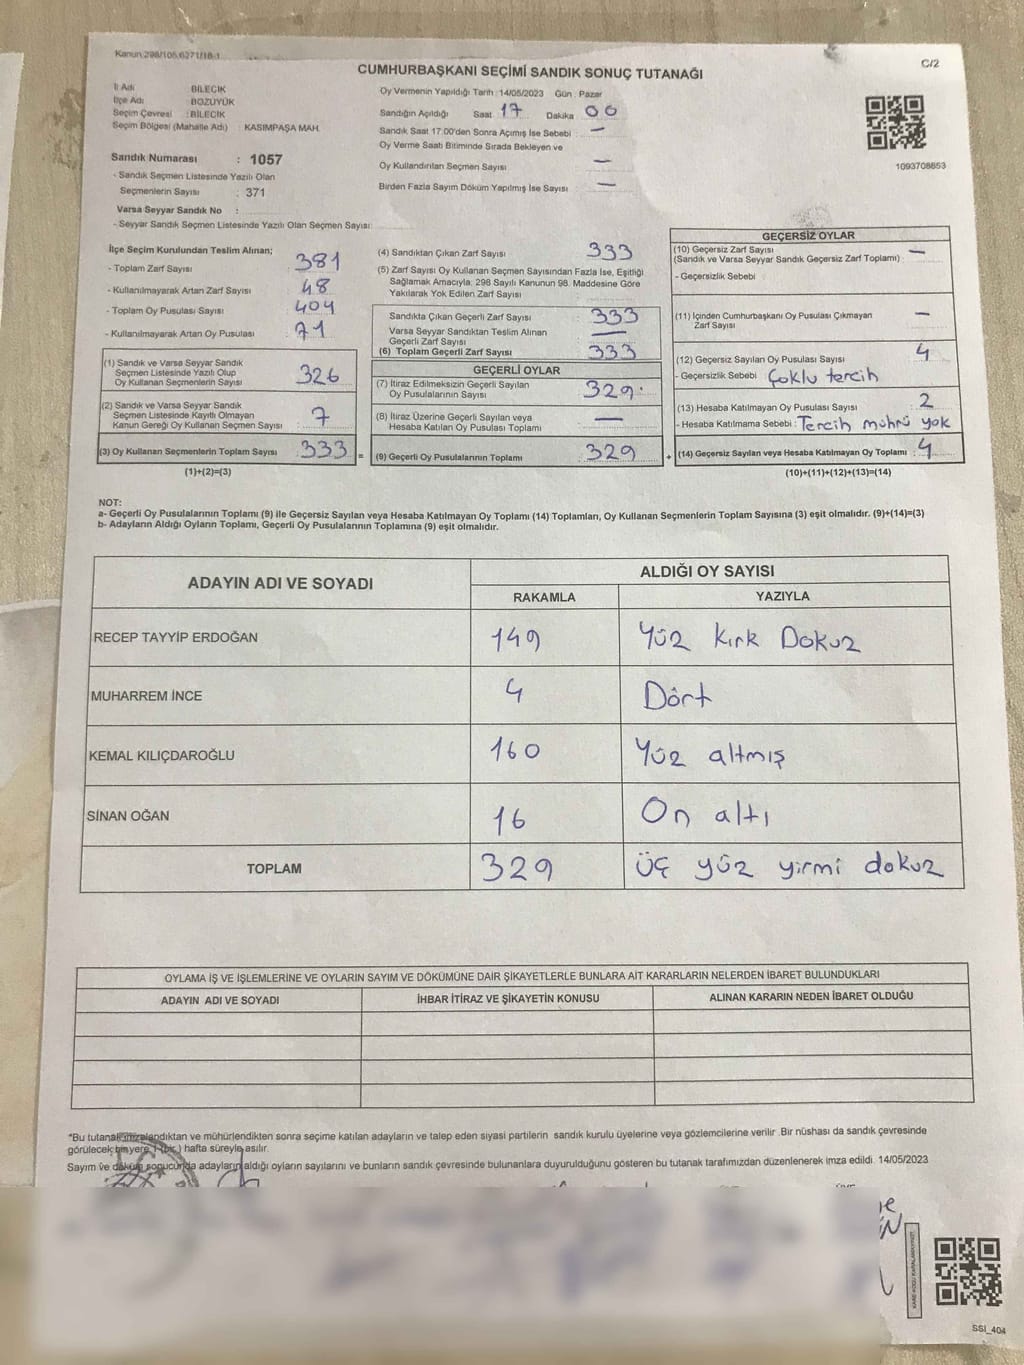 Kanun 298/105,6271/18-1
CUMHURBAŞKANI SEÇİMİ SANDIK SONUÇ TUTANAĞI
C/2
İl Adı BİLECİK
İlçe Adı BOZÜYÜK
Seçim Çevresi : BİLECİK
Seçim Bölgesi (Mahalle Adı) : KASIMPAŞA MAH.
Sandık Numarası : 1057
- Sandık Seçmen Listesinde Yazılı Olan
Seçmenlerin Sayısı : 371
Varsa Seyyar Sandık No :
- Seyyar Sandık Seçmen Listesinde Yazılı Olan Seçmen Sayısı:
Oy Vermenin Yapıldığı Tarih : 14/05/2023 Gün : Pazar
Sandığın Açıldığı Saat 17 Dakika 00
Sandık Saat 17:00'den Sonra Açımış İse Sebebi : —
Oy Verme Saati Bitiminde Sırada Bekleyen ve
Oy Kullandırılan Seçmen Sayısı —
Birden Fazla Sayım Döküm Yapılmış İse Sayısı —
1093708853
İlçe Seçim Kurulundan Teslim Alınan;
- Toplam Zarf Sayısı 381
- Kullanılmayarak Artan Zarf Sayısı 48
- Toplam Oy Pusulası Sayısı 404
- Kullanılmayarak Artan Oy Pusulası 71
(1) Sandık ve Varsa Seyyar Sandık
Seçmen Listesinde Yazılı Olup
Oy Kullanan Seçmenlerin Sayısı 326
(2) Sandık ve Varsa Seyyar Sandık
Seçmen Listesinde Kayıtlı Olmayan
Kanun Gereği Oy Kullanan Seçmen Sayısı 7
(3) Oy Kullanan Seçmenlerin Toplam Sayısı 333 =
(1)+(2)=(3)
(4) Sandıktan Çıkan Zarf Sayısı 333
(5) Zarf Sayısı Oy Kullanan Seçmen Sayısından Fazla İse, Eşitliği
Sağlamak Amacıyla, 298 Sayılı Kanunun 98. Maddesine Göre
Yakılarak Yok Edilen Zarf Sayısı
Sandıkta Çıkan Geçerli Zarf Sayısı 333
Varsa Seyyar Sandıktan Teslim Alınan
Geçerli Zarf Sayısı —
(6) Toplam Geçerli Zarf Sayısı 333
GEÇERLİ OYLAR
(7) İtiraz Edilmeksizin Geçerli Sayılan
Oy Pusulalarının Sayısı 329
(8) İtiraz Üzerine Geçerli Sayılan veya
Hesaba Katılan Oy Pusulası Toplamı —
(9) Geçerli Oy Pusulalarının Toplamı 329 +
GEÇERSİZ OYLAR
(10) Geçersiz Zarf Sayısı
(Sandık ve Varsa Seyyar Sandık Geçersiz Zarf Toplamı) : —
- Geçersizlik Sebebi :
(11) İçinden Cumhurbaşkanı Oy Pusulası Çıkmayan
Zarf Sayısı —
(12) Geçersiz Sayılan Oy Pusulası Sayısı 4
- Geçersizlik Sebebi : Çoklu tercih
(13) Hesaba Katılmayan Oy Pusulası Sayısı 2
- Hesaba Katılmama Sebebi : Tercih mührü yok
(14) Geçersiz Sayılan veya Hesaba Katılmayan Oy Toplamı : 4
(10)+(11)+(12)+(13)=(14)
NOT:
a- Geçerli Oy Pusulalarının Toplamı (9) ile Geçersiz Sayılan veya Hesaba Katılmayan Oy Toplamı (14) Toplamları, Oy Kullanan Seçmenlerin Toplam Sayısına (3) eşit olmalıdır. (9)+(14)=(3)
b- Adayların Aldığı Oyların Toplamı, Geçerli Oy Pusulalarının Toplamına (9) eşit olmalıdır.
ADAYIN ADI VE SOYADI
ALDIĞI OY SAYISI
RAKAMLA YAZIYLA
RECEP TAYYİP ERDOĞAN 149 Yüz Kırk Dokuz
MUHARREM İNCE 4 Dört
KEMAL KILIÇDAROĞLU 160 Yüz altmış
SİNAN OĞAN 16 On altı
TOPLAM 329 üç yüz yirmi dokuz
OYLAMA İŞ VE İŞLEMLERİNE VE OYLARIN SAYIM VE DÖKÜMÜNE DAİR ŞİKAYETLERLE BUNLARA AİT KARARLARIN NELERDEN İBARET BULUNDUKLARI
ADAYIN ADI VE SOYADI İHBAR İTİRAZ VE ŞİKAYETİN KONUSU ALINAN KARARIN NEDEN İBARET OLDUĞU
*Bu tutanak imzalandıktan ve mühürlendikten sonra seçime katılan adayların ve talep eden siyasi partilerin sandık kurulu üyelerine veya gözlemcilerine verilir .Bir nüshası da sandık çevresinde
görülecek bir yere 1 (bir) hafta süreyle asılır.
Sayım ve döküm sonucunda adayların aldığı oyların sayılarını ve bunların sandık çevresinde bulunanlara duyurulduğunu gösteren bu tutanak tarafımızdan düzenlenerek imza edildi. 14/05/2023
SSI_404